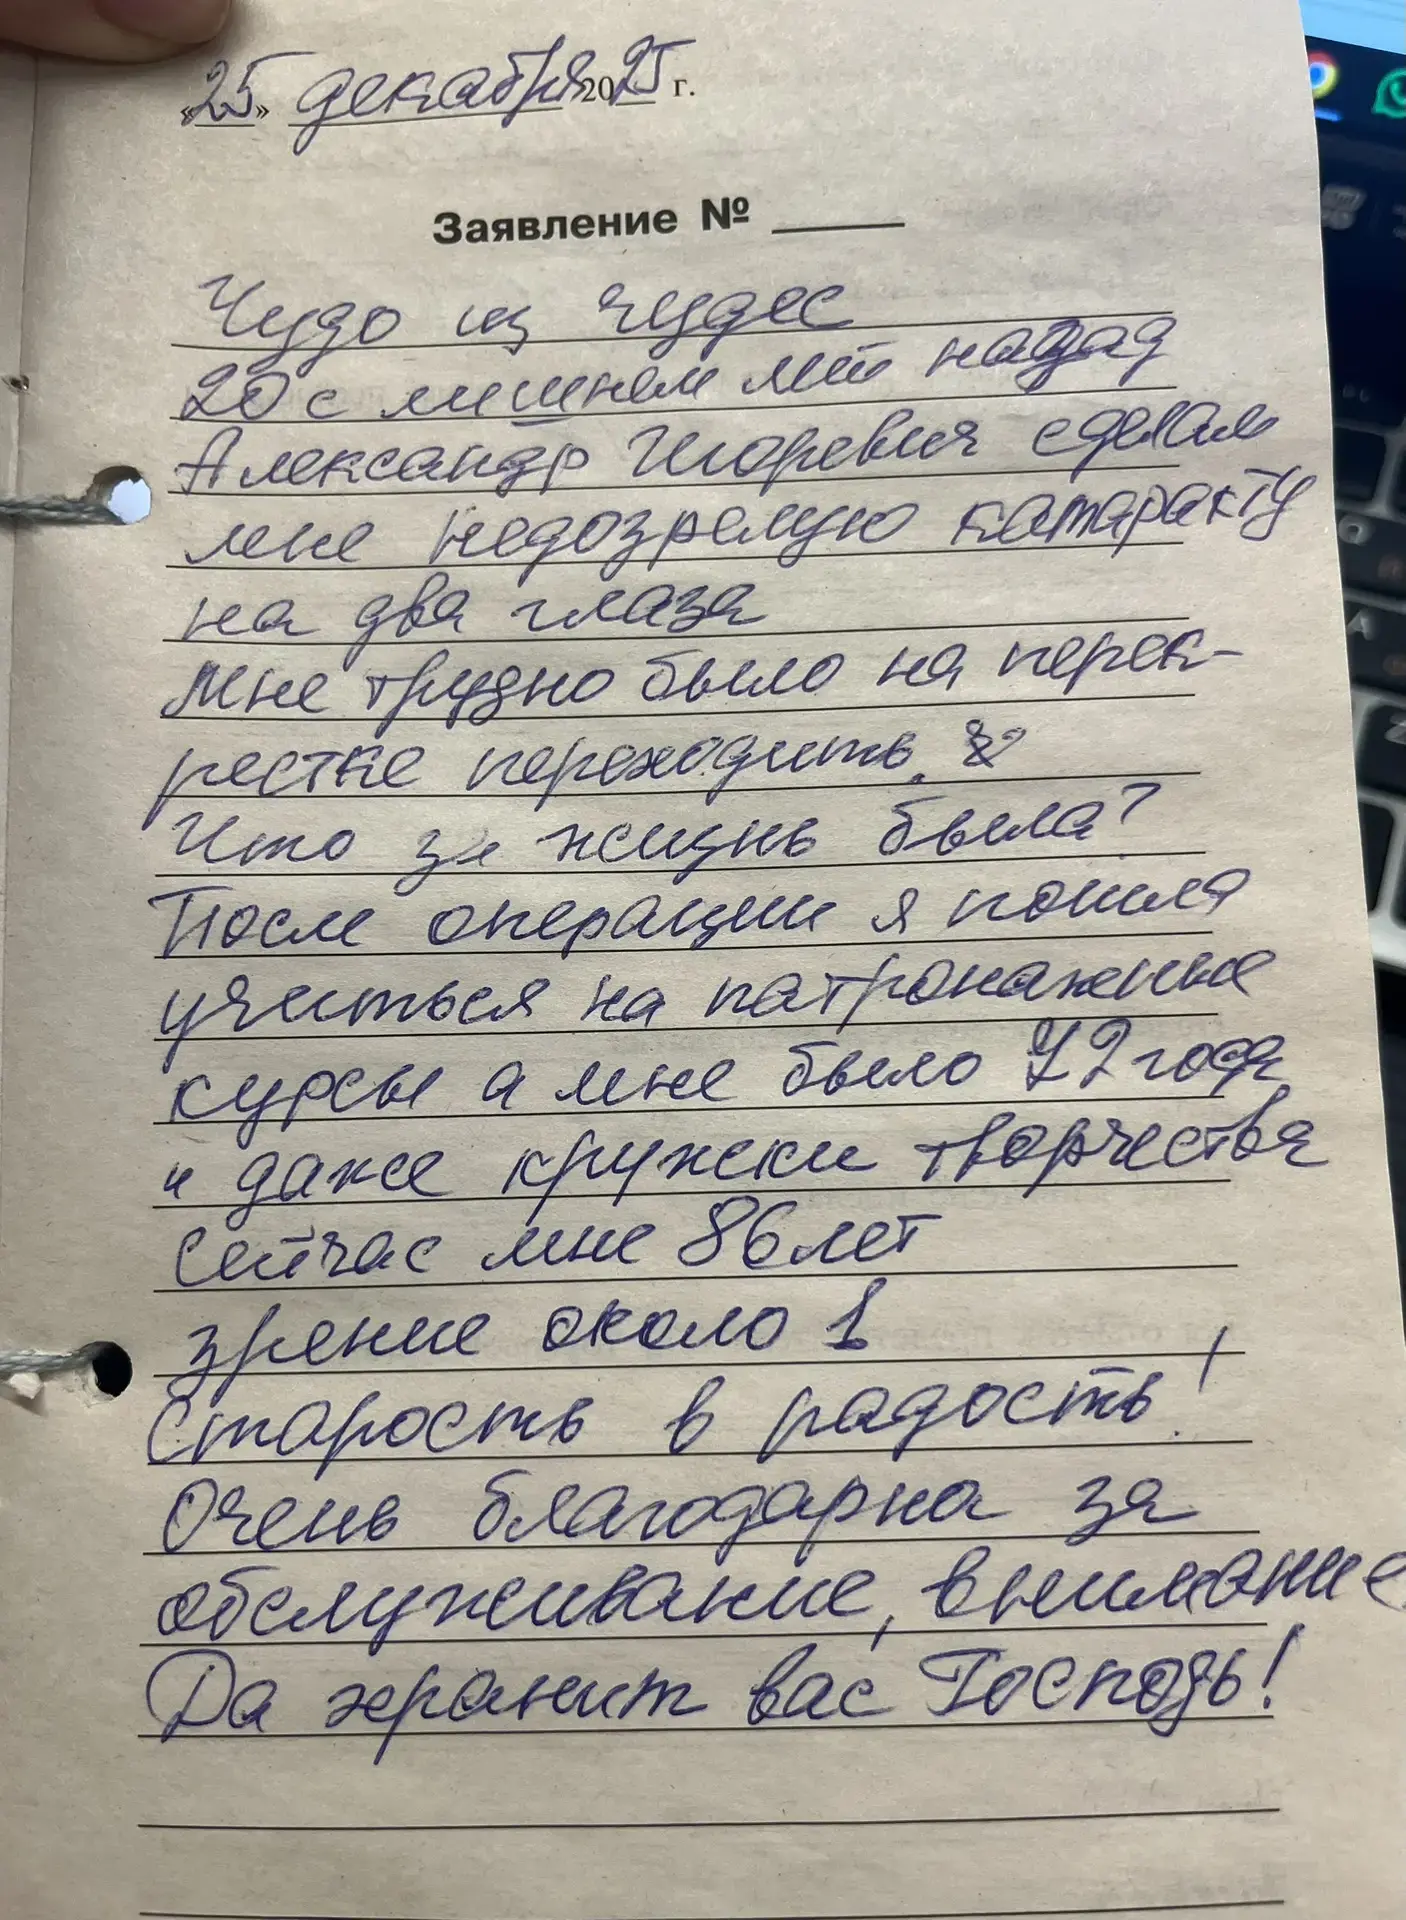 «25» декабря 2025 г.
Заявление № ____
Чудо из чудес
20 с лишнем лет назад
Александр Игоревич сделал
мне недозрелую катаракту
на два глаза
Мне трудно было на перек-
рестке переходить.
Что за жизнь была?
После операции я пошла
учиться на патронажные
курсы а мне было 72 года
и даже кружки творчества
Сейчас мне 86 лет
зрение около 1
Старость в радость!
Очень благодарна за
обслуживание, внимание
Да хранит вас Господь!